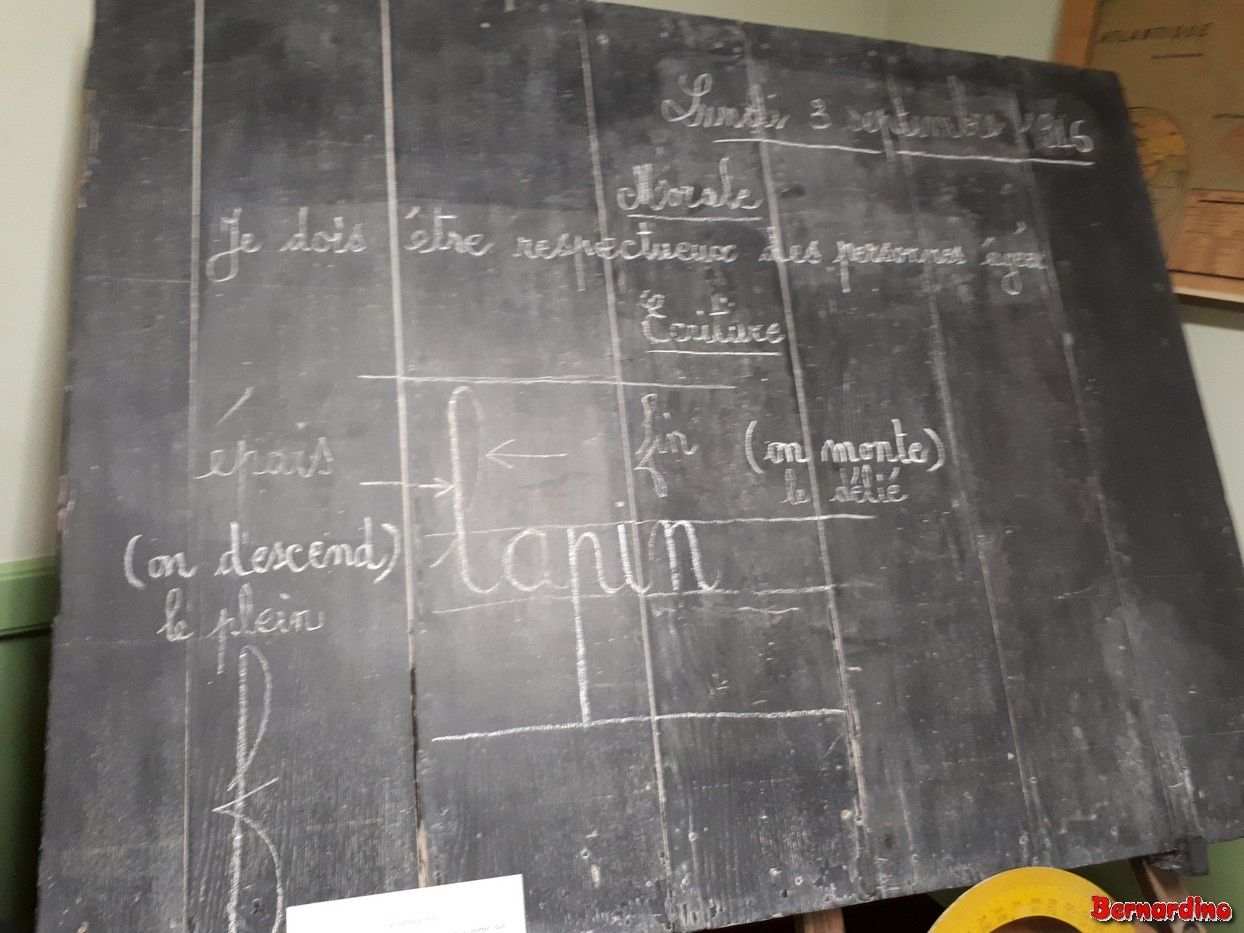 ATLANTIQUE
Lundi 3 septembre
Morale
Je dois être respectueux des personnes
Écriture
épais
fin
(on monte)
le délié
lapin
(on descend)
le plein
f
Bernardino